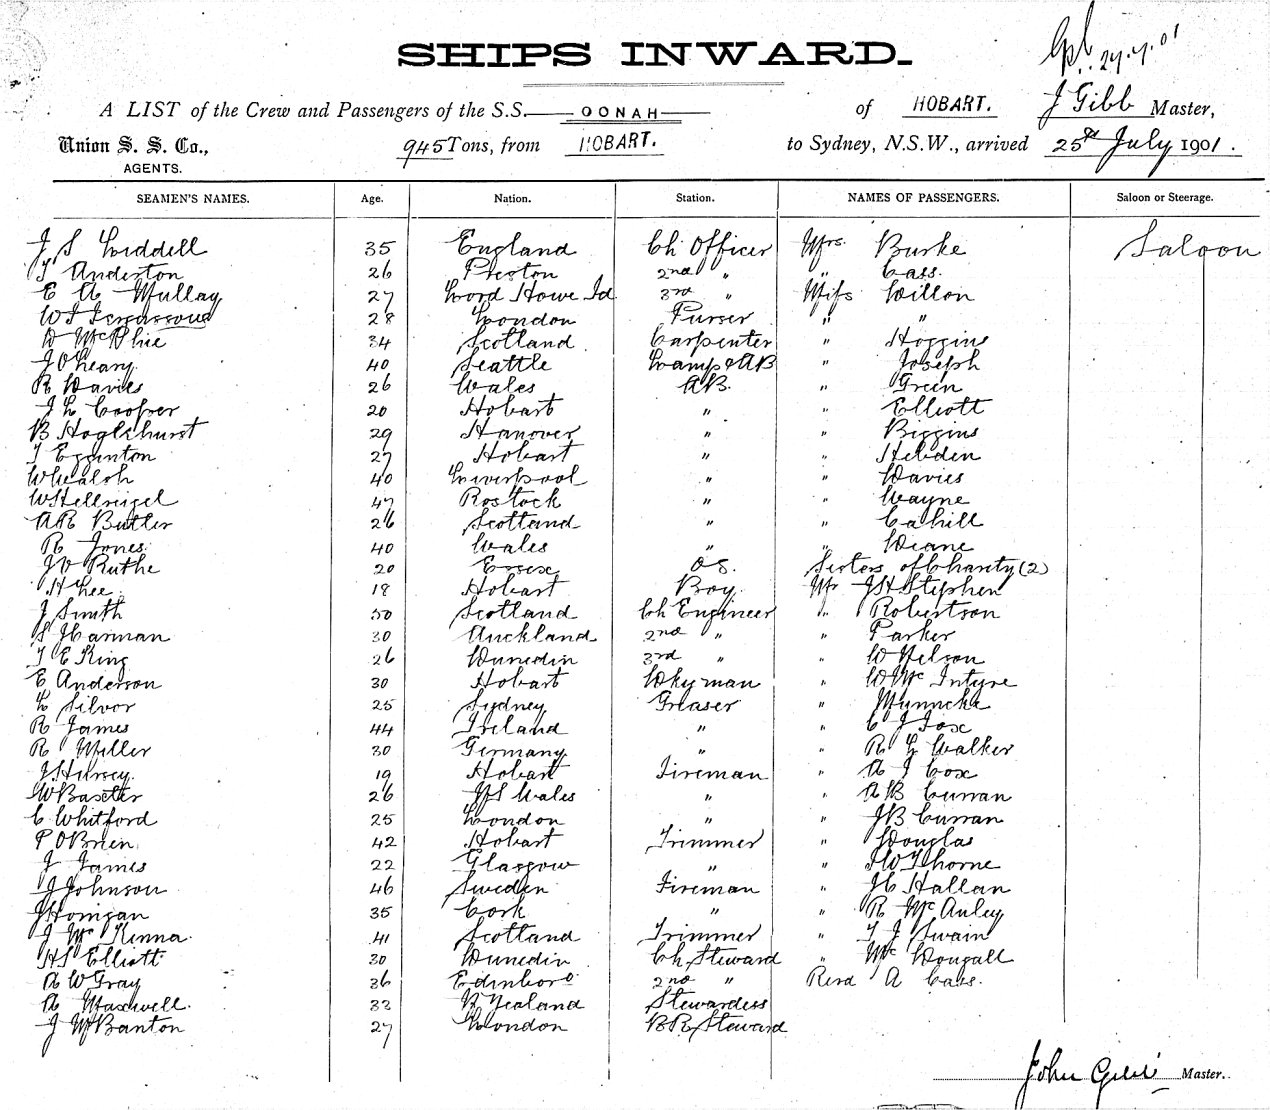 SHIPS INWARD.
A LIST of the Crew and Passengers of the S.S. OONAH of HOBART. J Gibb Master,
Union S. S. Co., 945 Tons, from HOBART. to Sydney, N.S.W., arrived 25th July 1901.
AGENTS.
SEAMEN'S NAMES. Age. Nation. Station. NAMES OF PASSENGERS. Saloon or Steerage.
J S Liddell 35 England Ch Officer Mrs. Burke Saloon
T Anderton 26 Preston 2nd " " Cass.
E A Mullay 27 Lord Howe Id 3rd " Miss Dillon
28 London Purser " "
D McPhie 34 Scotland Carpenter " Hoggins
J O'Leary 40 Seattle Lamps & AB " Joseph
R Davies 26 Wales AB. " Green
J L Cooper 20 Hobart " " Elliott
B Hoglehurst 29 Hanover " " Biggins
T Egginton 27 Hobart " " Hebden
W Walsh 40 Liverpool " " Davies
W Hellreigel 47 Rostock " " Wayne
A R Butler 26 Scotland " " Cahill
R Jones 40 Wales " " Deane
J V Ruthe 20 Essex OS. Sisters of Charity (2)
H Lee 18 Hobart Boy Mr J H Stephen
J Smith 50 Scotland Ch Engineer " Robertson
S Harman 30 Auckland 2nd " " Parker
T E King 26 Dunedin 3rd " " W Nelson
E Anderson 30 Hobart Dkyman " W McIntyre
L Silvor 25 Sydney Greaser " Munncke
R James 44 Ireland " " C J Fox
R Miller 30 Germany " " R L Walker
J Hursey. 19 Hobart Fireman " A J Cox
W Baxter 26 N S Wales " " A B Curran
C Whitford 25 London " " J B Curran
P O'Brien 42 Hobart Trimmer " Douglas
J James 22 Glasgow " " W Thorne
J Johnson 46 Sweden Fireman " J C Hallan
J Horrigan 35 Cork " " R McAuley
J McKinna 41 Scotland Trimmer " T J Swain
H S Elliott 30 Dunedin Ch Steward " McDougall
A W Gray 36 Edinboro 2nd " Revd A Cass.
A Maxwell. 33 N Zealand Stewardess
J W Banton 27 London BR Steward
John Gibb Master.